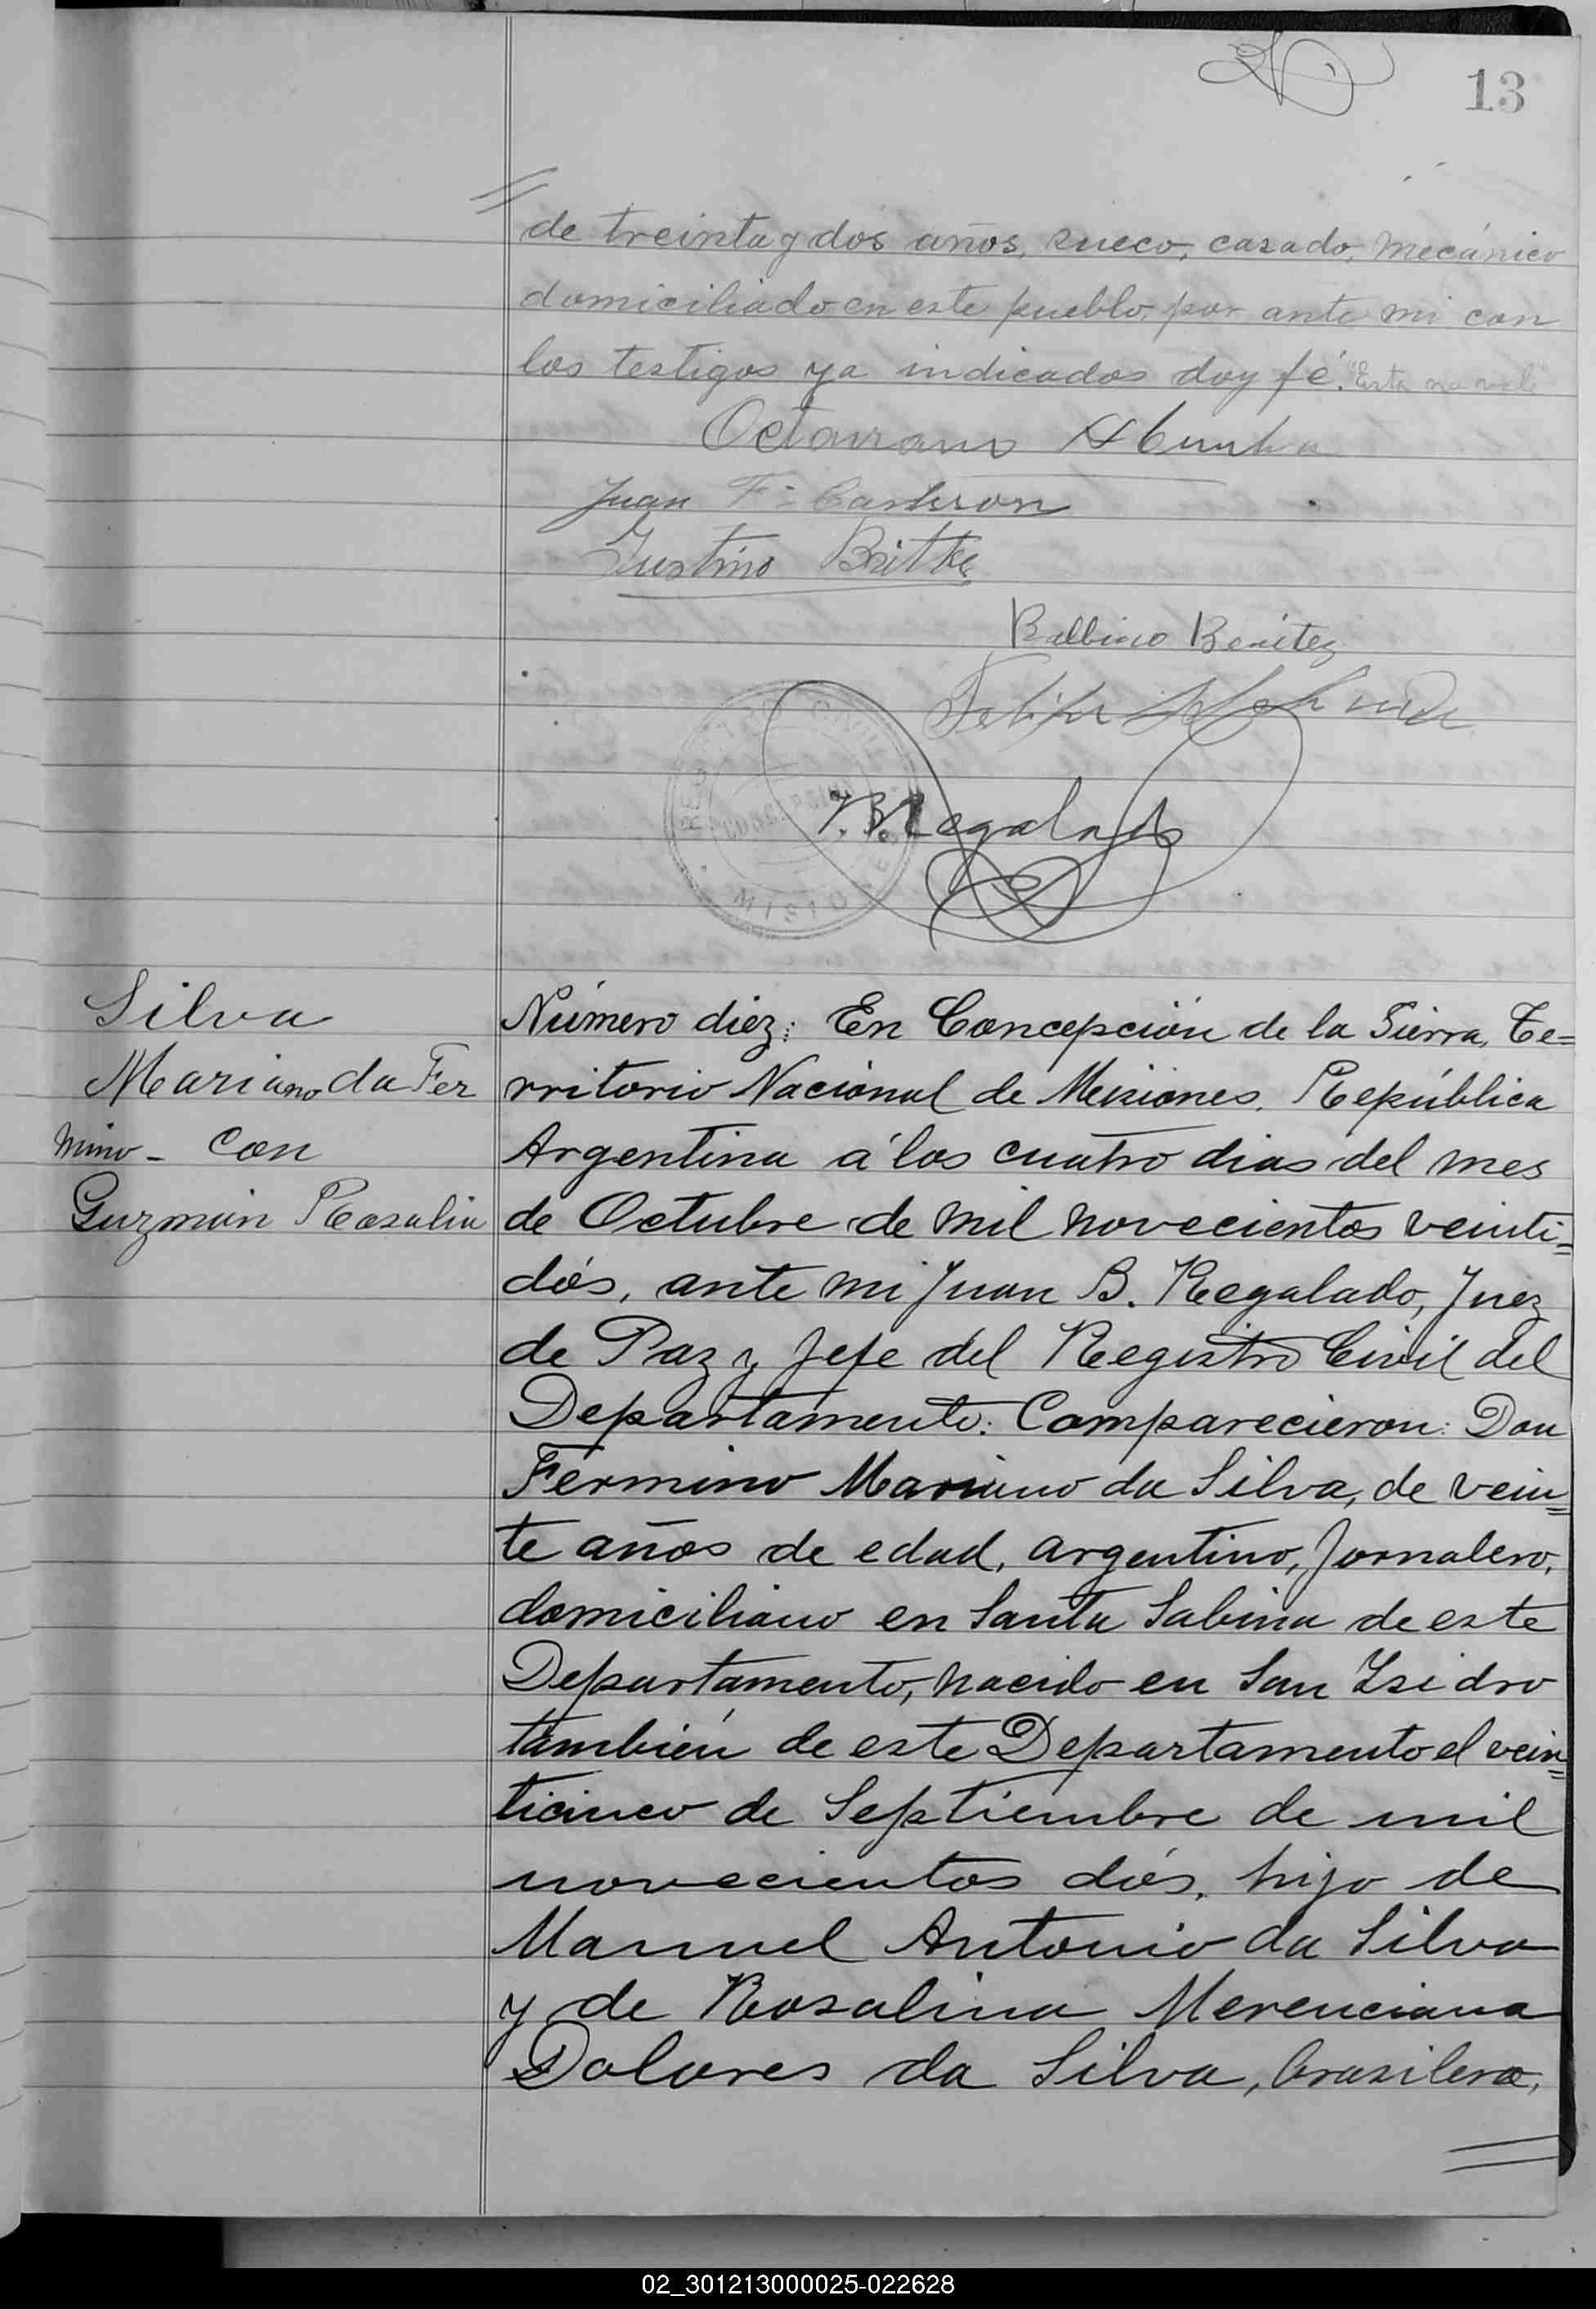 13
de treinta y dos años, sueco, casado, mecánico
domiciliado en este pueblo, por ante mi con
los testigos ya indicados doy fé. "Esta no vale"
Octaviano
Juan F.
Justino Britke
Balbino Benítez
Felipe
J. B. Regalado
REGISTRO CIVIL
CONCEPCION
MISIONES
Silva
Mariano da Fer
mino - con
Guzmán Rosalia
Número diez: En Concepción de la Sierra, Te=
rritorio Nacional de Misiones, República
Argentina á los cuatro dias del mes
de Octubre de mil novecientos veinti=
dós, ante mi Juan B. Regalado, Juez
de Paz y Jefe del Registro Civil del
Departamento: Comparecieron: Don
Fermino Mariano da Silva, de vein=
te años de edad, argentino, Jornalero,
domiciliano en Santa Sabina de este
Departamento, nacido en San Isidro
también de este Departamento el vein=
ticinco de Septiembre de mil
novecientos dós, hijo de
Manuel Antonio da Silva
y de Rosalina Merenciana
Dolores da Silva, brasilera,
02_301213000025-022628